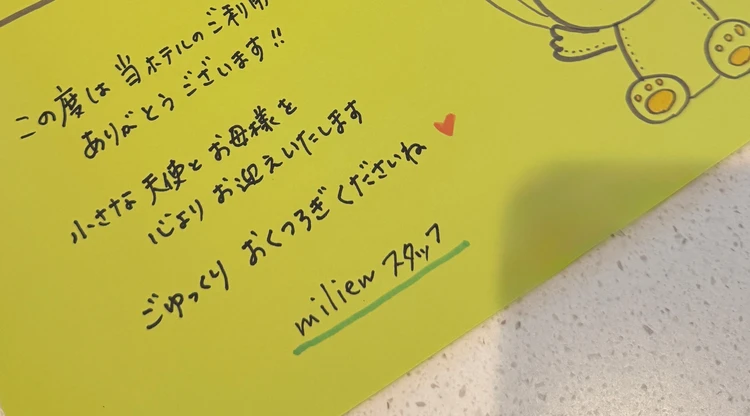 この度は 当ホテルのご利用
ありがとうございます!!
小さな 天使と お母様を
心より お迎えいたします
ごゆっくり おくつろぎ くださいね
milieu スタッフ